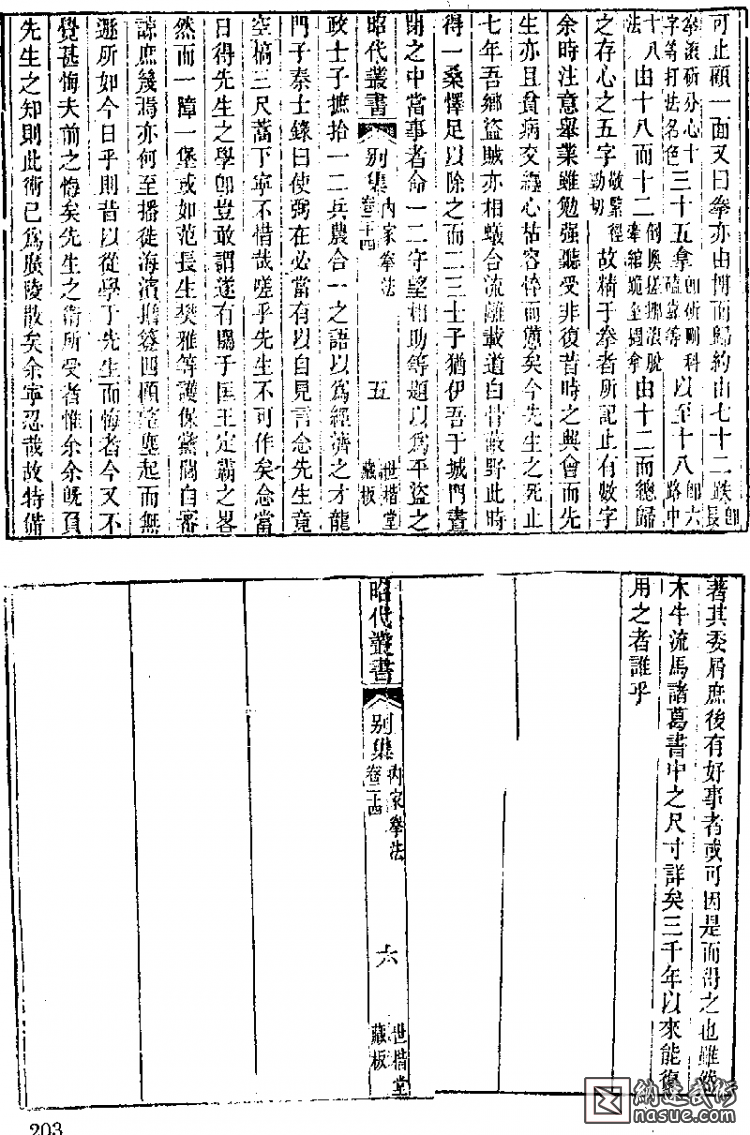 可止顧一面又曰拳亦由博而歸約由七十二跌即長
拳滾斫分心十字等打法名色三十五拿即斫刪科磕靠等以至十八即六路中
十八法由十八而十二倒換搓挪滾脫牽綰跪坐撾拿由十二而總歸
之存心之五字敬緊徑勁切故精于拳者所記止有數字
余時注意舉業雖勉强聽受非復昔時之興會而先
生亦且貧病交纏心枯容悴而憊矣今先生之死止
七年吾鄉盜賊亦相蟻合流離載道白骨蔽野此時
得一桑懌足以除之而二三士子猶伊吾于城門晝
閉之中當事者命一二守望相助等題以爲平盜之
昭代叢書 别集 卷二十四 內家拳法 五 世楷堂藏板
政士子摭拾一二兵農合一之語以爲經濟之才龍
門子秦士錄曰使弼在必當有以自見言念先生竟
空槁三尺蒿下寧不惜哉嗟乎先生不可作矣念當
日得先生之學卽豈敢謂遂有關于匡王定霸之畧
然而一障一堡或如范長生樊雅等護保黨閭自審
諒庶幾焉亦何至播徙海濱擔簦四顧望塵起而無
遯所如今日乎則昔以從學于先生而悔者今又不
覺甚悔夫前之悔矣先生之術所受者惟余余旣負
先生之知則此術已爲廣陵散矣余寧忍哉故特備
著其委屑庶後有好事者或可因是而得之也雖然
木牛流馬諸葛書中之尺寸詳矣三千年以來能復
用之者誰乎
昭代叢書 别集 卷二十四 內家拳法 六 世楷堂藏板
203
納達武術
nasue.com